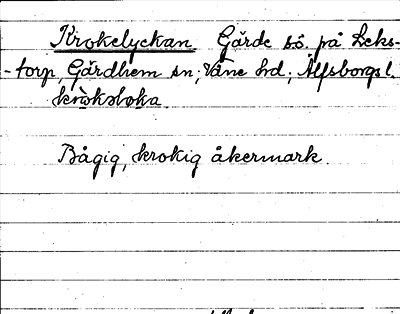 Krokelyckan Gärde sö. på Leks-
-torp, Gärdhem sn; Väne hd; Älfsborgs l.
Bågig, krokig åkermark.